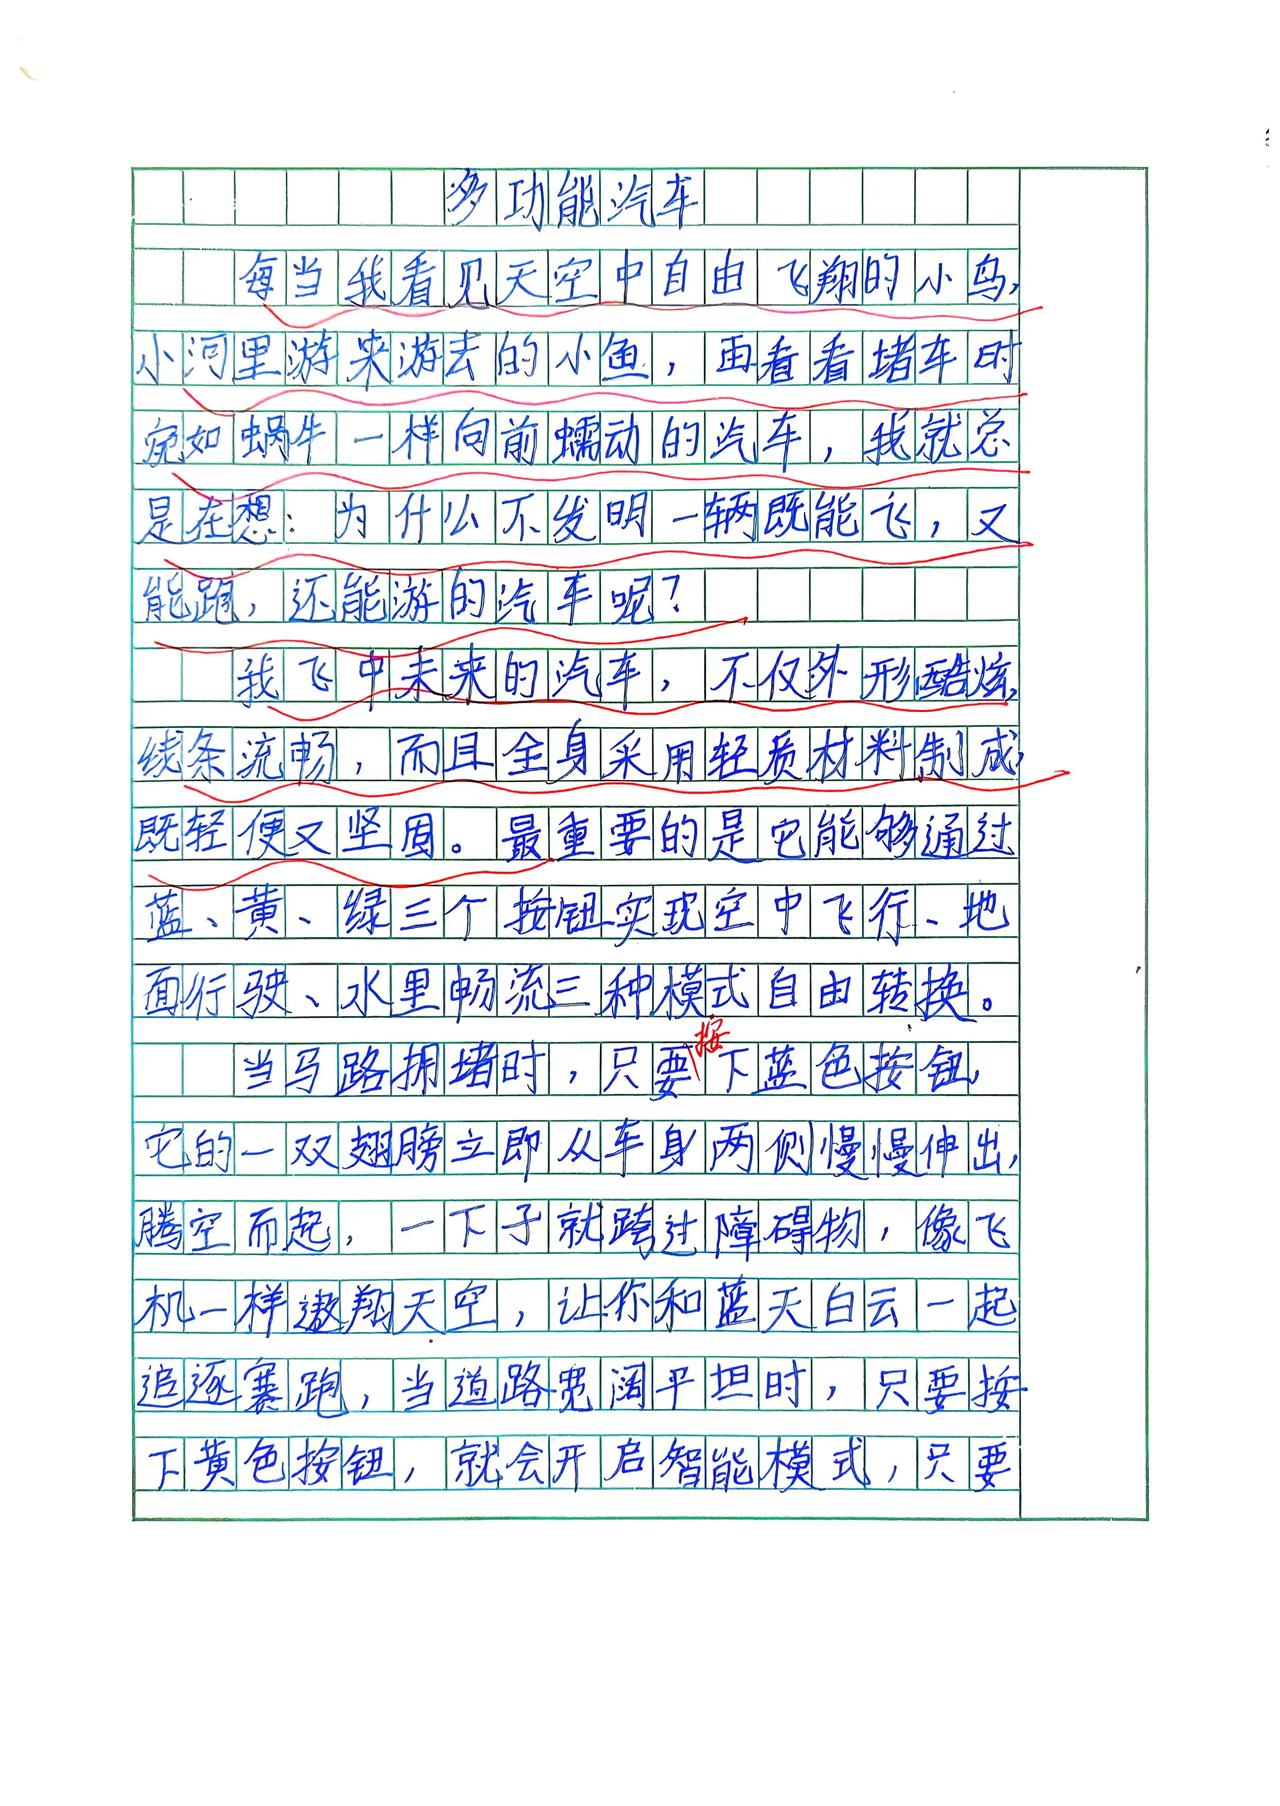 多功能汽车
每当我看见天空中自由飞翔的小鸟,
小河里游来游去的小鱼，再看看堵车时
宛如蜗牛一样向前蠕动的汽车，我就总
是在想：为什么不发明一辆既能飞，又
能跑，还能游的汽车呢？
我飞中未来的汽车，不仅外形酷炫,
线条流畅，而且全身采用轻质材料制成,
既轻便又坚固。最重要的是它能够通过
蓝、黄、绿三个按钮实现空中飞行、地
面行驶、水里畅流三种模式自由转换。
当马路拥堵时，只要按下蓝色按钮,
它的一双翅膀立即从车身两侧慢慢伸出,
腾空而起，一下子就跨过障碍物，像飞
机一样遨翔天空，让你和蓝天白云一起
追逐赛跑，当道路宽阔平坦时，只要按
下黄色按钮，就会开启智能模式，只要